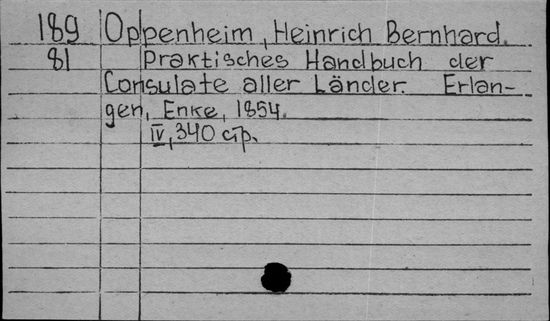 189 Oppenheim, Heinrich Bernhard.
81 Praktisches Handbuch der
Consulate aller Länder. Erlan-
gen, Enke, 1854.
IV, 340 стр.